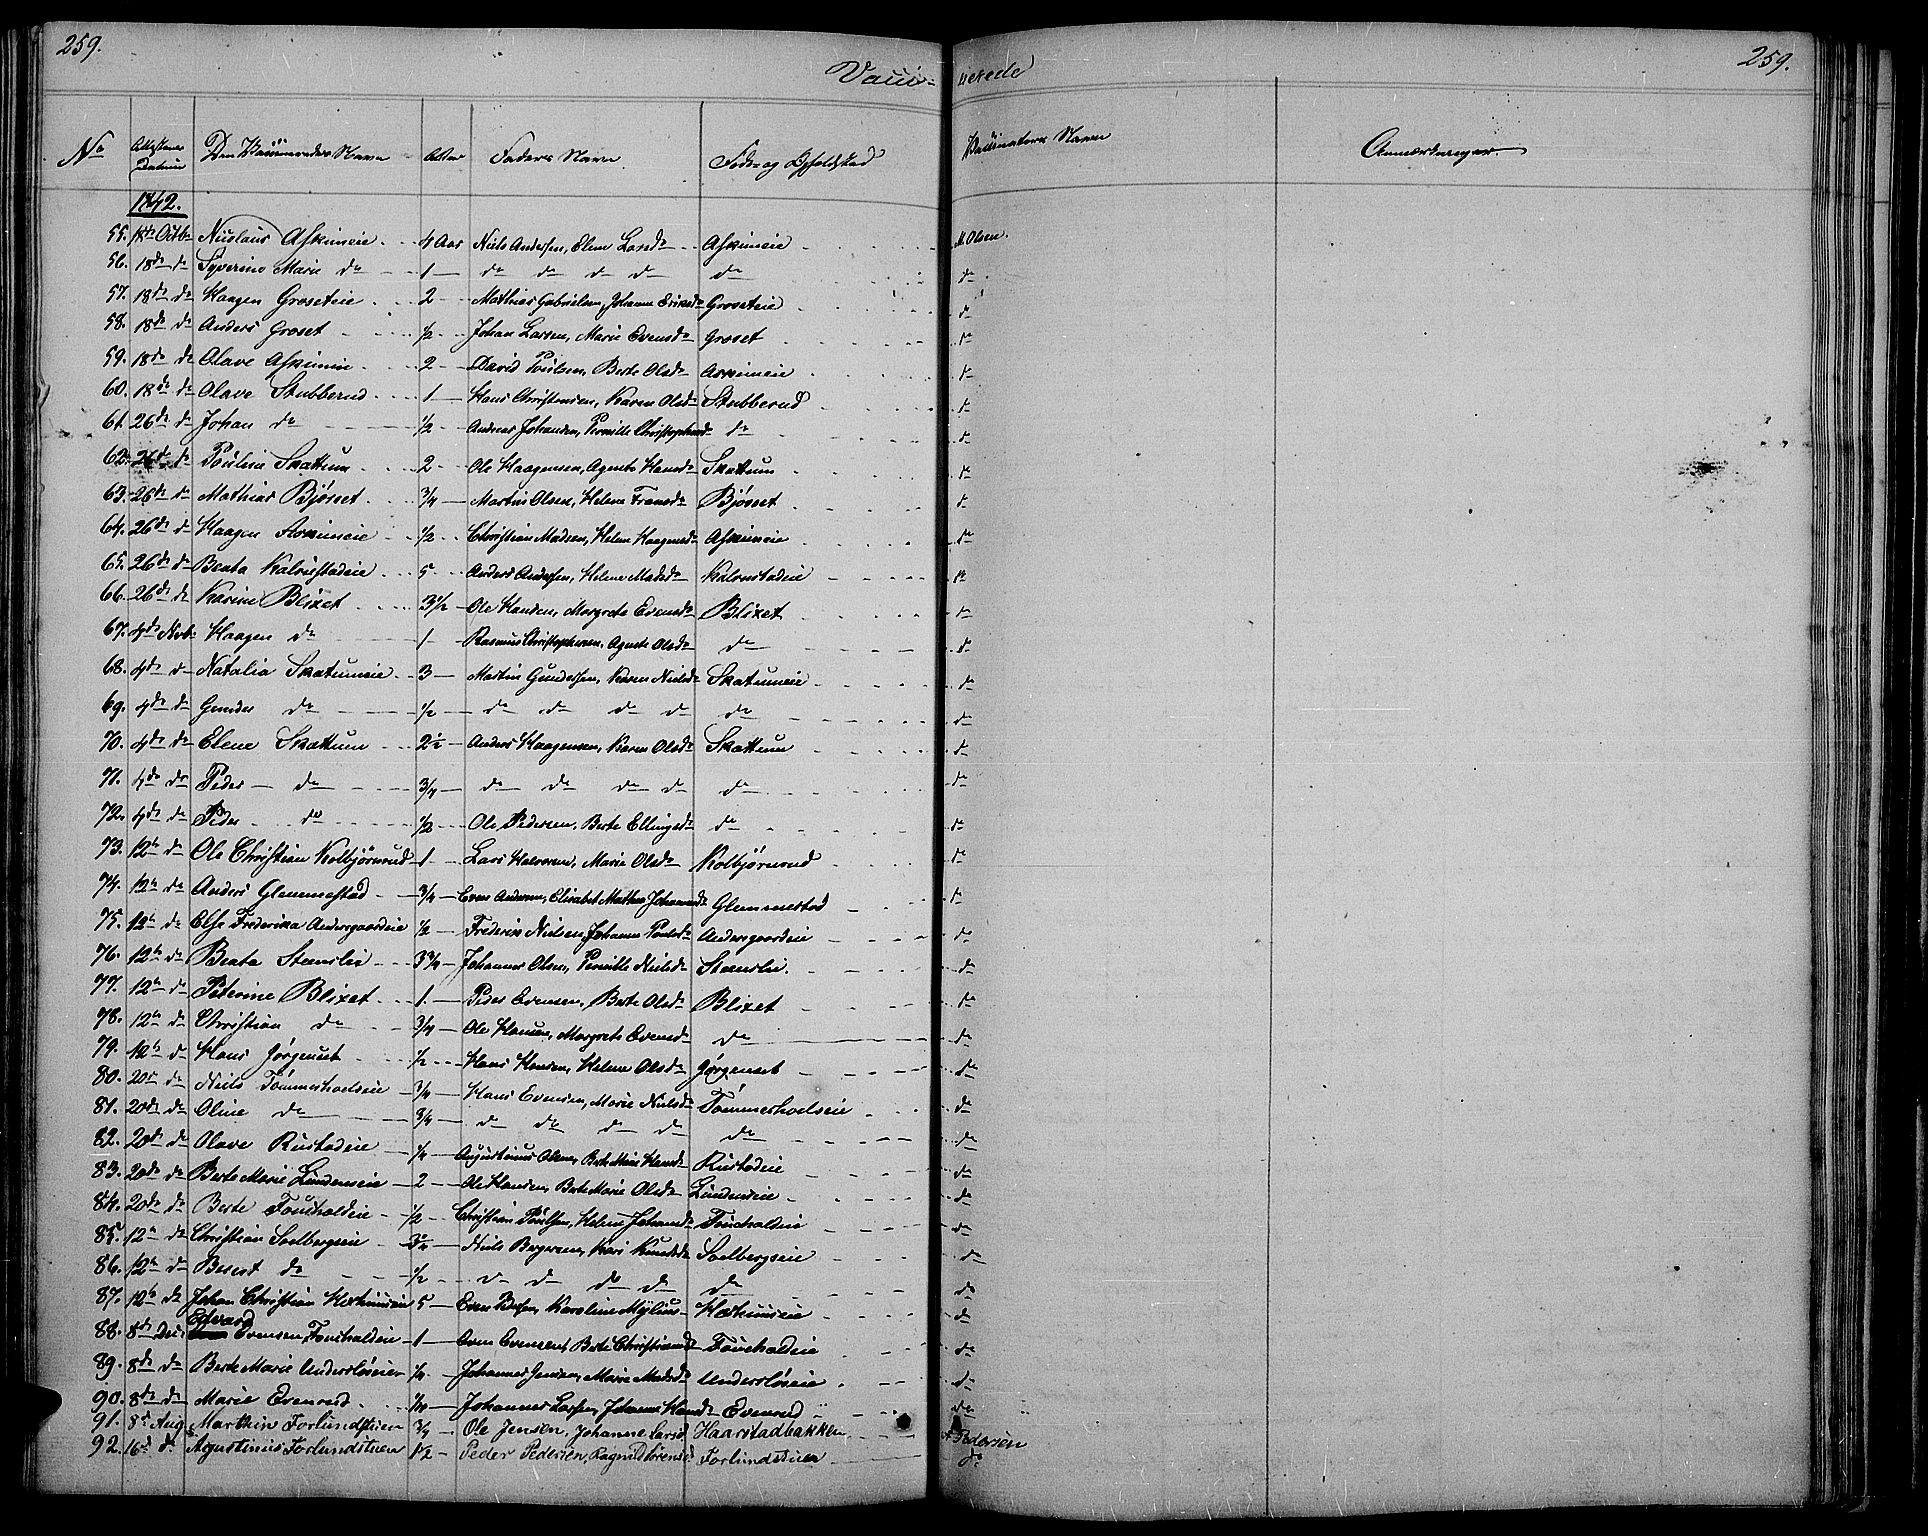 259. 259.
Vacci- nerede
No Attestens Datum Den Vaccineredes Navn Alder Faders Navn Føde og Opholdsted Vaccinators Navn Anmærkninger.
1842.
55. 18de Octbr Nicolaus Askimeie 4 Aar Niels Andersen, Elene Larsdr Askimeie M. Olsen.
56. 18de do Syverine Marie do 1 do do do do do do
57. 18de do Haagen Groseteie 2 Mathias Gabrielsen, Johanne Eriksdr Groseteie do
58. 18de do Anders Groset 1/2 Johan Larsen, Marie Evensdr Groset do
59. 18de do Olave Askimeie 2 David Poulsen, Berte Olsdr Askimeie do
60. 18de do Olave Stubberud 1 Hans Christensen, Karen Olsdr Stubberud do
61. 26de do Johan do 1/2 Andreas Johansen, Pernille Christophersd do do
62. 26de do Poulina Skattum 2 Ole Haagensen, Agnete Hansdr Skattum do
63. 26de do Mathias Bjøset 3/4 Martin Olsen, Helene Fransdr Bjøset do
64. 26de do Haagen Askimeie 1/2 Christian Madsen, Helene Haagensdr Askimeie do
65. 26de do Beata Kalvestadeie 5 Anders Andersen, Helene Madsdr Kalvestadeie do
66. 26de do Karine Blixet 3 1/2 Ole Hansen, Margrete Evensdr Blixet do
67. 4de Novbr Haagen do 1 Rasmus Christophersen, Agnete Olsdr do do
68. 4de do Natalia Skatumeie 3 Martin Gundersen, Karen Nielsdr Skatumeie do
69. 4de do Gunder do 1/2 do do do do do do
70. 4de do Elene Skattum 2 1/2 Anders Haagensen, Karen Olsdr Skattum do
71. 4de do Peder do 3/4 do do do do do do
72. 4de do Peder do 1/2 Ole Pedersen, Berte Ellingsdr do do
73. 12te do Ole Christian Kolbjørnrud 1 Lars Halvorsen, Marie Olsdr Kolbjørnrud do
74. 12te do Anders Glemmestad 3/4 Even Andersen, Elisabet Mathea Johannesdr Glemmestad do
75. 12te do Else Frederika Andersgaardeie 1/2 Frederik Nielsen, Johanne Poulsdr Andersgaardeie do
76. 12te do Beata Stenslie 3 3/4 Johannes Olsen, Pernille Nielsdr Stenslie. do
77. 12te do Peterine Blixet 1 Peder Evensen, Berte Olsdr Blixet do
78. 12te do Christian do 3/4 Ole Hansen, Margrete Evensdr do do
79. 12te do Hans Jørgenset 1/2 Hans Hansen, Helene Olsdr Jørgenset do
80. 20de do Niels Tømmerholseie 3/4 Hans Evensen, Marie Nielsdr Tømmerholseie do
81. 20de do Oline do 3/4 do do do do do do
82. 20de do Olave Rustadeie 1/4 Augustinus Olsen, Berte Marie Hansdr Rustadeie do
83. 20de do Berte Marie Lundeneie 2 Ole Hansen, Berte Marie Olsdr Lundeneie do
84. 20de do Berte Fourhaldeie 1/2 Christian Poulsen, Helene Johansdr Fourhaldeie do
85. 12te do Christian Soelbergseie Niels Bergersen, Kari Knudsdr Soelbergseie do
86. 12te do Besert do 1/2 do do do do do do
87. 12te do Johan Christian 5 Even, Karoline Mylius do
88. 8de Dec. Edvard Evensen, Fourhaldeie 1 Aren Evensen, Berte Christiansdr Fourhaldeie do
89. 8de do Berte Marie Underrløseie 1/4 Johannes Jensen, Marie Madsdr Underrløseie do
90. 8de do Marie Evenrud 1/4 Johannes Larsen, Johanne Hansdr Evenrud do
91. 8d Aug Marthin Forlundstuen 3/4 Ole Jensen, Johanne Larsd Haarstadbakken A. Pedersen
92. 16d do Agustinius Forlundstuen 1 1/2 Peder Pedersen, Ragnild Sørensd Forlundstuen do